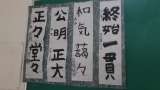 終始一貫
和気藹々
公明正大
正々堂々